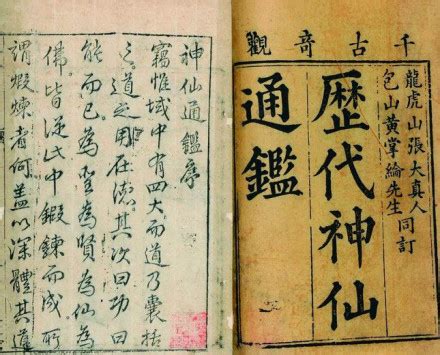 千古竒觀
龍虎山張大真人
包山黃掌綸先生
同訂
歴代神仙
通鑑
神仙通鑑序
竊惟域中有四大而道乃囊括
之道之用在德其次曰功曰
能而已為聖為賢為仙為
佛皆從此中鍛鍊而成所
謂煅煉者何盖以深體其道